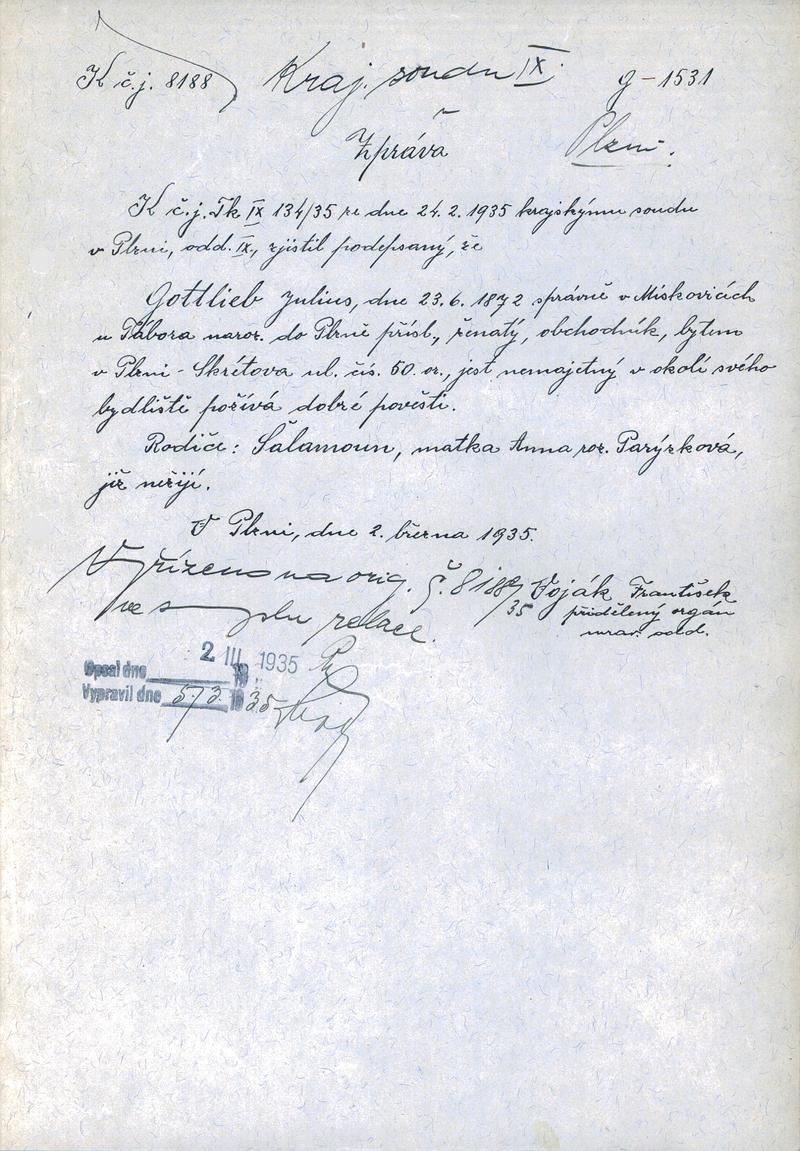 K č.j. 8188 Kraj. soudu IX. g-1531
Zpráva Plzni.
K č.j. Tk IX 134/35 ze dne 24. 2. 1935 krajskýmu soudu
v Plzni, odd. IX., zjistil podepsaný, že
Gottlieb Julius, dne 23. 6. 1872 správně v Miskovicích
u Tábora naroz. do Plzně přísl., ženatý, obchodník, bytem
v Plzni - Skrétova ul. čís. 50. or., jest nemajetný v okolí svého
bydliště požívá dobré pověsti.
Rodiče: Šalamoun, matka Anna roz. Parýzková,
již nežijí.
V Plzni, dne 2. března 1935.
Vyřízeno na orig. č. 8188/35
ve smyslu relace.
Voják František
přidělený orgán
mrav. odd.
2 III. 1935
Opsal dne 19
Vypravil dne 5/3 1935